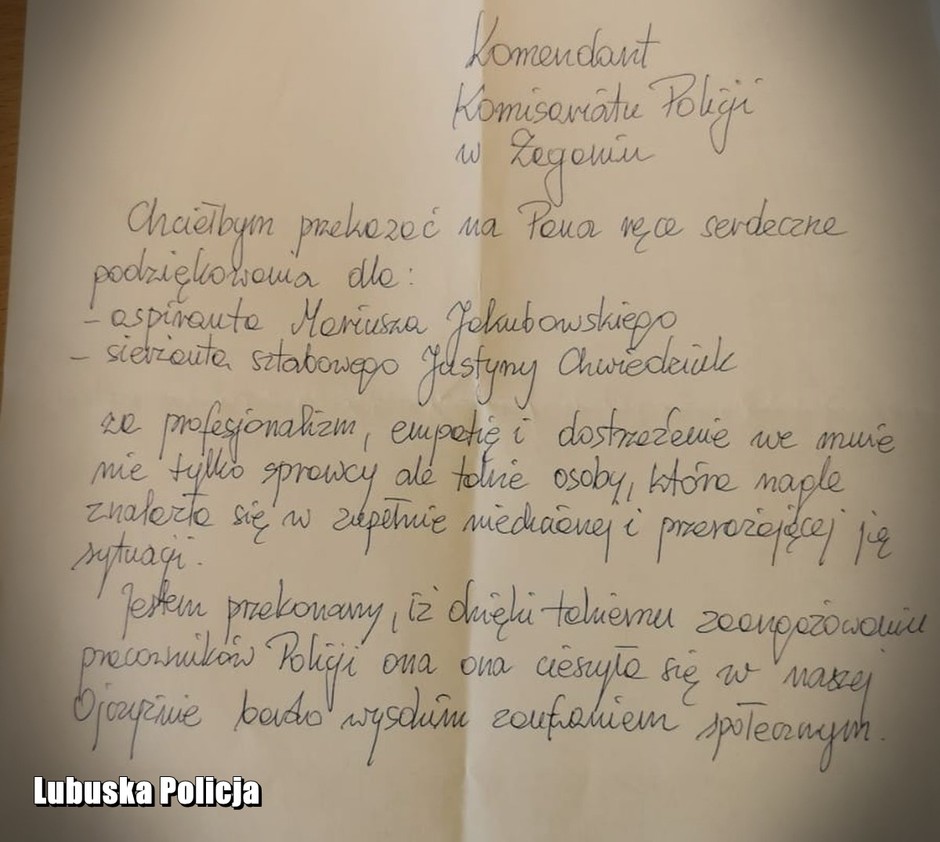 Komendant
Komisariatu Policji
w Żaganiu
Chciałbym przekazać na Pana ręce serdeczne
podziękowania dla:
- aspiranta Mariusza Jakubowskiego
- sierżanta sztabowego Justyny Chwiedziuk
za profesjonalizm, empatię i dostrzeżenie we mnie
nie tylko sprawcy ale także osoby, która nagle
znalazła się w zupełnie niechcianej i przerażającej ją
sytuacji.
Jestem przekonany, iż dzięki takiemu zaangażowaniu
pracowników Policji ona ona cieszyła się w naszej
Ojczyźnie bardzo wysokim zaufaniem społecznym.
Lubuska Policja